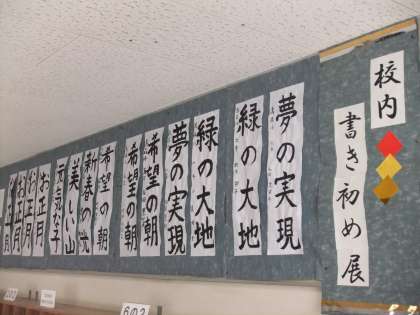 校内
書き初め展
夢の実現
緑の大地
緑の大地
夢の実現
希望の朝
希望の朝
希望の朝
新春の光
美しい山
元気な子
お正月
お正月
お正月
お正月
6の2